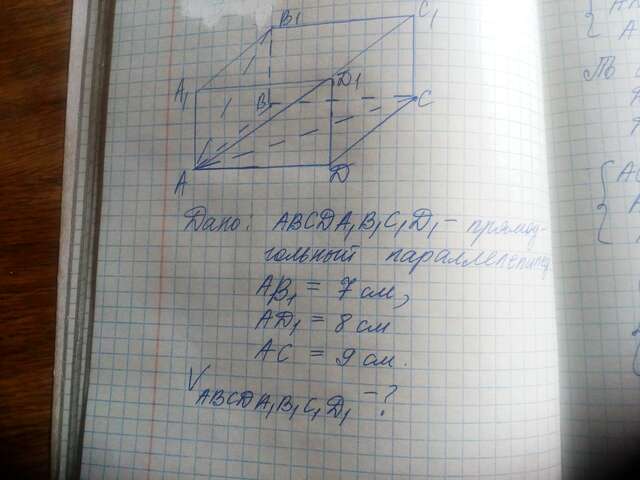 B₁
C₁
A₁
D₁
B
C
A
D
Дано: ABCDA₁B₁C₁D₁ – прямоу-
гольный параллелепипед
AB₁ = 7 см,
AD₁ = 8 см
AC = 9 см.
V ABCDA₁B₁C₁D₁ – ?